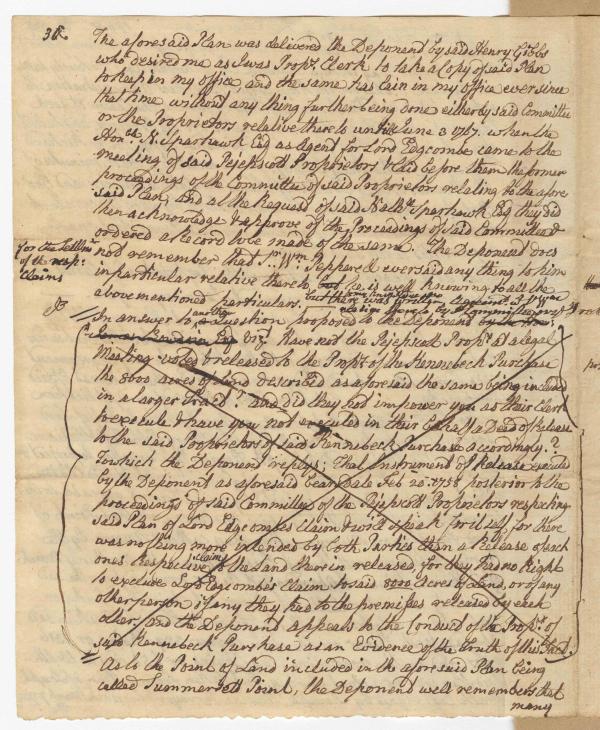 38.
The aforesaid Plan was delivered the Deponend by said Henry Gibbs
who desired me as I was Prop.rs Clerk to take a Copy of said Plan
to keep in my office, and the same has lain in my office ever since
that time without any thing further being done either by said Committee
or the Proprietors relative thereto until June 3 1767. when the
Hon.ble N. Sparhawk Esq as Agent for Lord Edgcombe came to the
meeting of said Pejepscott Proprietors & laid before them the former
proceedings of the Committee of said Proprietors relating to the afore
said Plan, and at the Request of said Nath.l Sparhawk Esq they did
then acknowledge & approve of the Proceedings of said Committee &
ordered a Record to be made of the same. The Deponend does
not remember that S.r W.m Pepperell ever said any thing to him
for the Settlm.t
of the resp.e
Claims
in particular relative thereto, he is well knowing to all the
abovementioned particulars. but there was
In answer to another Question proposed to the Deponend
viz.t Have not the Pejepscot Prop.rs at a legal
Meeting voted & released to the Prop.rs of the Kennebeck Purchase
the 8000 acres of Land described as aforesaid the same being included
in a larger Tract? and did they not impower you as their Clerk
to execute & have you not executed in their behalf a Deed of Release
to the said Proprietors of said Kennebeck Purchase accordingly?
To which the Deponend replys; That Instrument of Release executed
by the Deponend as aforesaid bears Date Feb 20. 1758 posterior to the
proceedings of said Committee of the Pejepscott Proprietors respecting
said Plan of Lord Edgcombes Claim & will speak for itself, for there
was nothing more intended by both Parties than a Release of each
ones Respective claim to the Land therein released, for they had no Right
to exclude Lord Edgcombe's Claim to said 8000 Acres of Land, or of any
other person if any they had to the premisses released by each
other, and the Deponend appeals to the Conduct of the Prop.rs of
said Kennebeck Purchase as an Evidence of the Truth of this
As to the Point of Land included in the aforesaid Plan being
called Summersett Point, the Deponend well remembers that
many